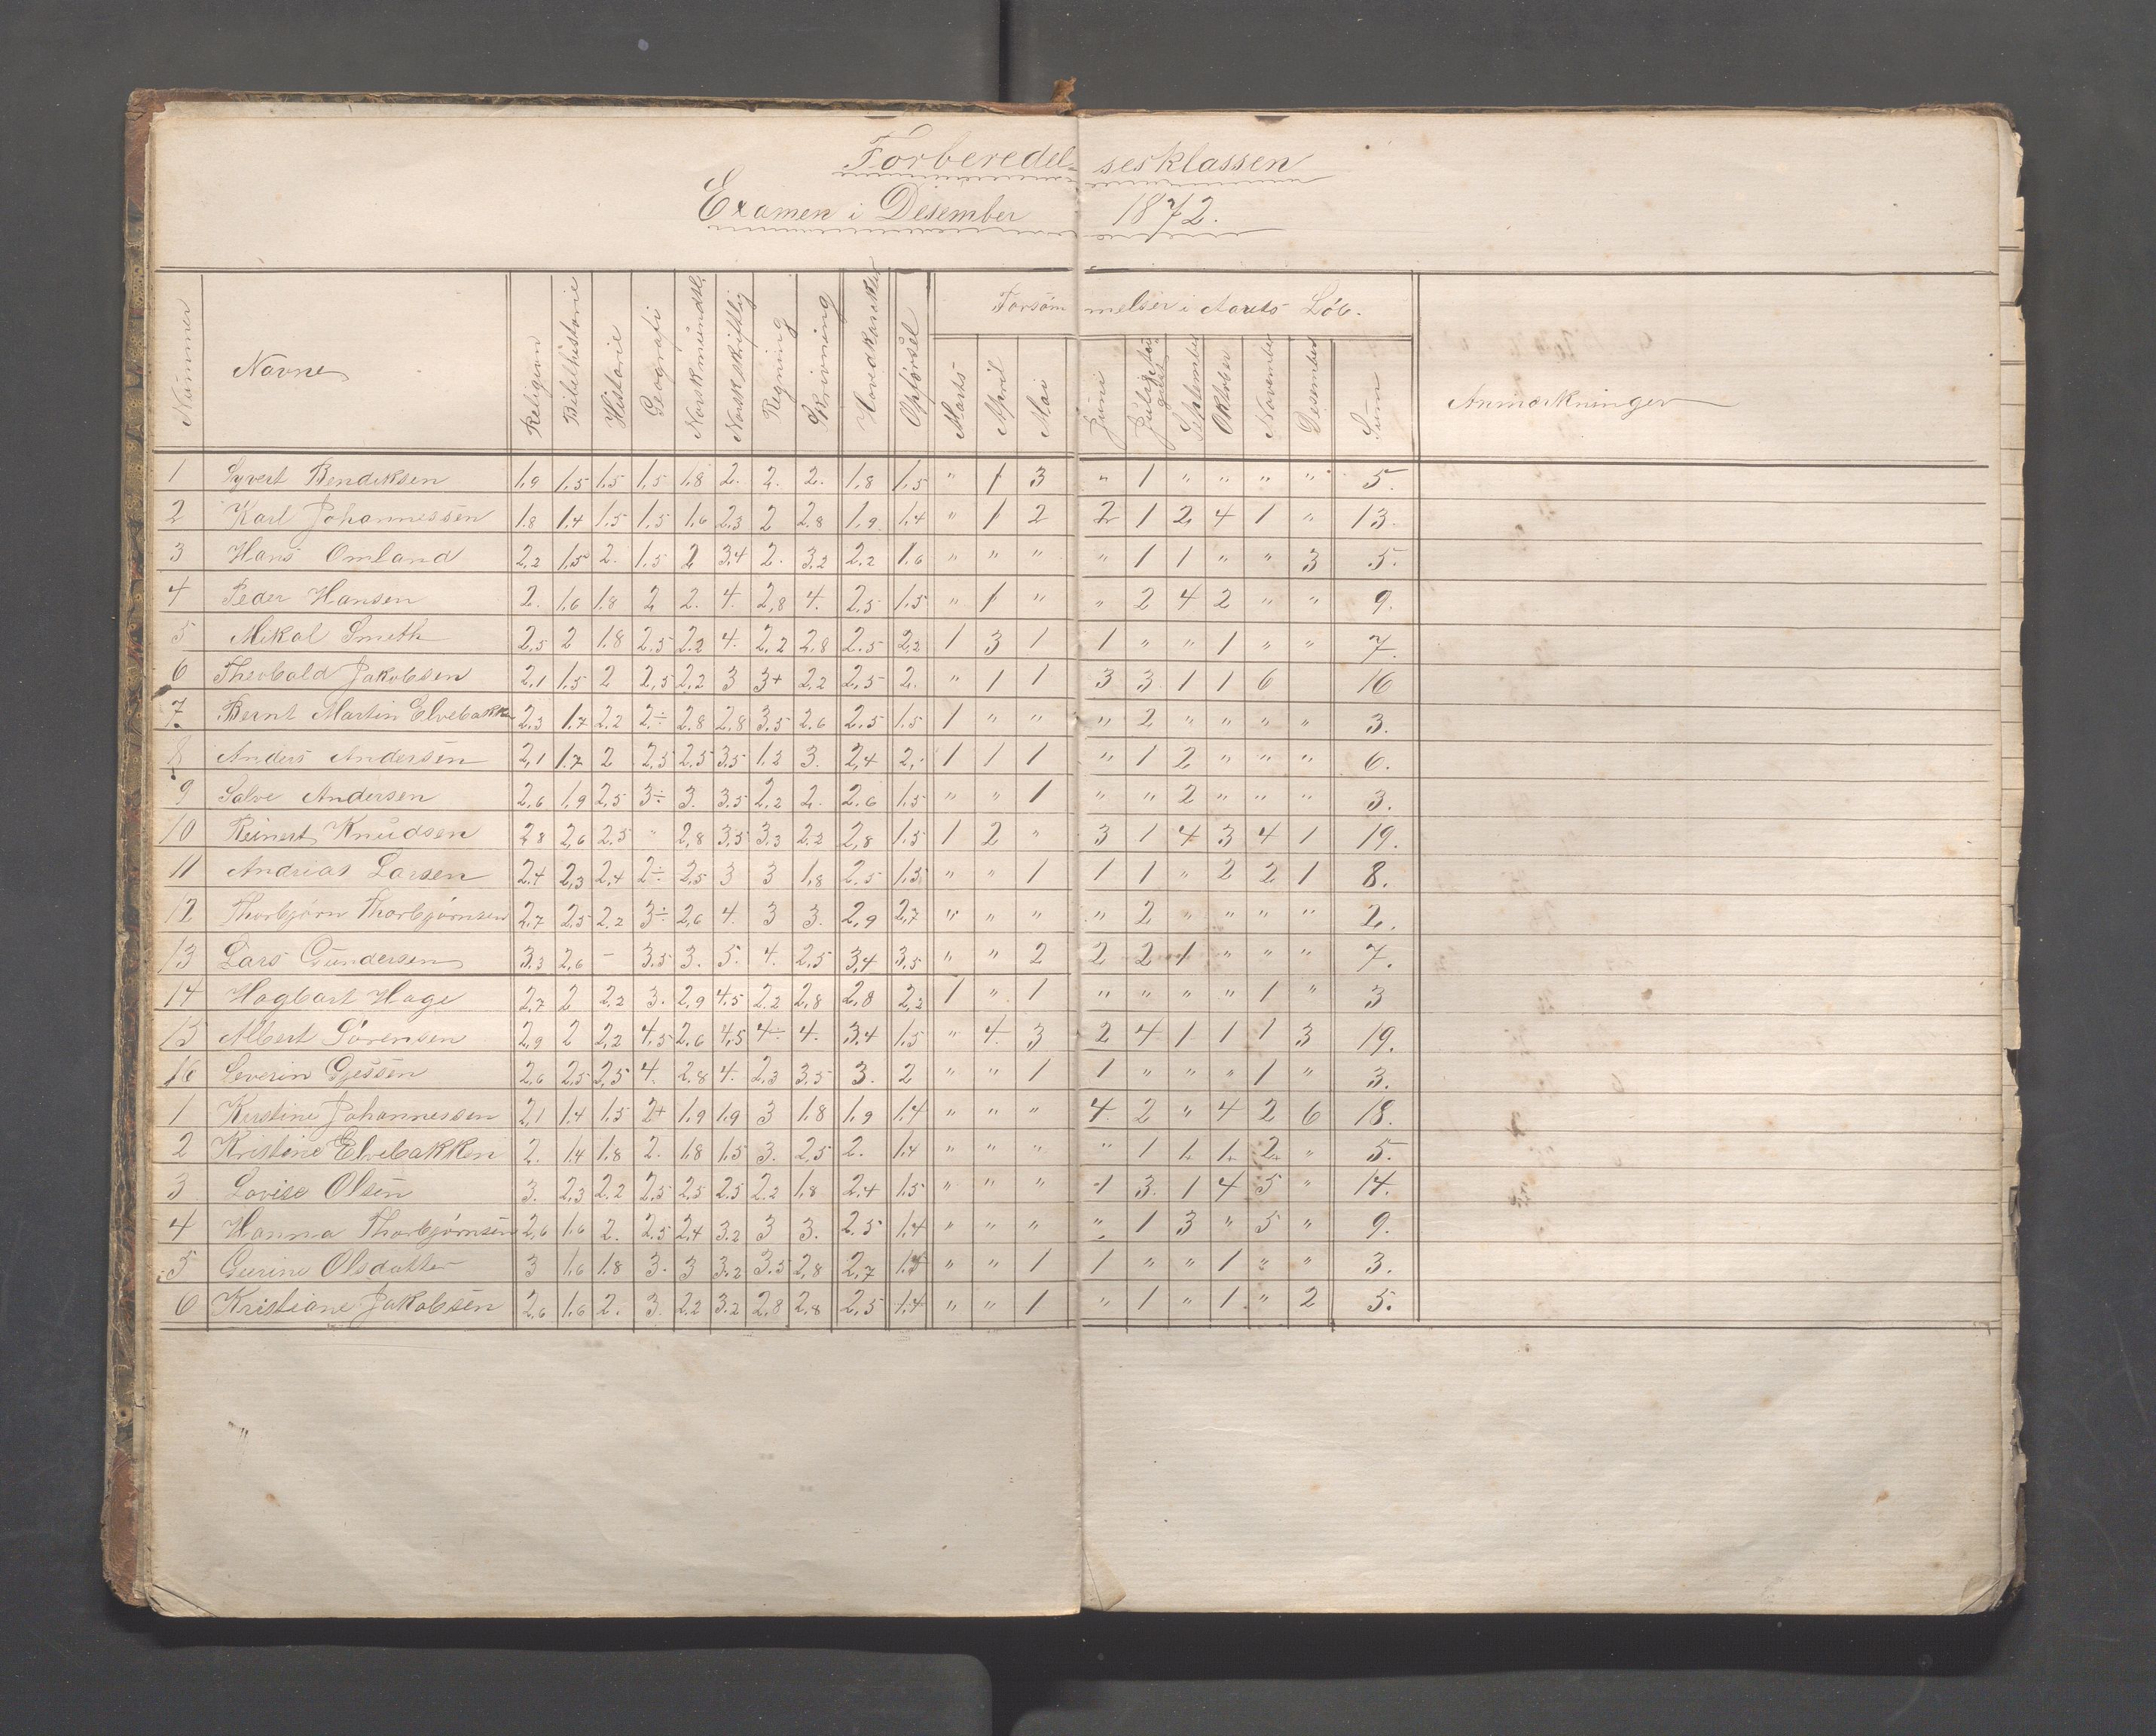 Forberedelsesklassen
Examen i Desember 1872.
Forsømmelser i Aarets Løb.
Nummer Navne Religion Bibelhistorie Historie Geografi Norsk mundtl. Norsk skriftlig Regning Skrivning Hovedkarakter Opførsel Marts April Mai Juni Juli September Oktober November Desember Sum Anmærkninger
1 Syvert Bendiksen 1,9 1,5 1,5 1,5 1,8 2. 2. 2. 1,8 1,5 " 1 3 " 1 " " " " 5.
2 Karl Johannessen 1,8 1,4 1,5 1,5 1,6 2,3 2 2,8 1,9 1,4 " 1 2 2 1 2 4 1 " 13.
3 Hans Omland 2,2 1,5 2. 1,5 2 3,4 2. 3,2 2,2 1,6 " " " " 1 1 " " 3 5.
4 Peder Hansen 2. 1,6 1,8 2 2. 4. 2,8 4. 2,5 1,5 " 1 " " 2 4 2 " " 9.
5 Mikal Smith 2,5 2 1,8 2,5 2,2 4. 2,2 2,8 2,5 2,2 1 3 1 1 " " 1 " " 7.
6 Theobald Jakobsen 2,1 1,5 2 2,5 2,2 3 3+ 2,2 2,5 2. " 1 1 3 3 1 1 6 16
7 Bernt Martin Elvebakken 2,3 1,7 2,2 2÷ 2,8 2,8 3,5 2,6 2,5 1,5 1 " " " 2 " " " " 3.
8 Anders Andersen 2,1 1,7 2 2,5 2,5 3,5 1,2 3. 2,4 2. 1 1 1 " 1 2 " " " 6.
9 Salve Andersen 2,6 1,9 2,5 3÷ 3. 3,5 2,2 2. 2,6 1,5 " " 1 " " 2 " " " 3.
10 Reinert Knudsen 2,8 2,6 2,5 " 2,8 3,5 3,3 2,2 2,8 1,5 1 2 " 3 1 4 3 4 1 19.
11 Andreas Larsen 2,4 2,3 2,4 2÷ 2,5 3 3 1,8 2,5 1,5 " " 1 1 1 " 2 2 1 8.
12 Thorbjørn Thorbjørnsen 2,7 2,5 2,2 3÷ 2,6 4. 3 3. 2,9 2,7 " " " " 2 " " " " 2.
13 Lars Gundersen 3,3 2,6 - 3,5 3. 5. 4. 2,5 3,4 3,5 " " 2 2 2 1 " " " 7.
14 Hagbart Hage 2,7 2 2,2 3. 2,9 4,5 2,2 2,8 2,8 2,2 1 " 1 " " " " 1 " 3
15 Albert Sørensen 2,9 2 2,2 4,5 2,6 4,5 4÷ 4. 3,4 1,5 " 4 3 2 4 1 1 1 3 19.
16 Severin Gjessen 2,6 2,5 2,5 4. 2,8 4. 2,3 3,5 3. 2 " " 1 1 " " " 1 " 3.
1 Kirstine Johannessen 2,1 1,4 1,5 2+ 1,9 1,9 3 1,8 1,9 1,4 " " " 4 2 " 4 2 6 18.
2 Kristine Elvebakken 2. 1,4 1,8 2. 1,8 1,5 3. 2,5 2. 1,4 " " " " 1 1 1 2 " 5.
3 Lovise Olsen 3. 2,3 2,2 2,5 2,5 2,5 2,2 1,8 2,4 1,5 " " " 1 3. 1 4 5 " 14.
4 Hanna Thorbjørnsen 2,6 1,6 2. 2,5 2,4 3,2 3 3. 2,5 1,4 " " " " 1 3 " 5 " 9.
5 Gurine Olsdatter 3 1,6 1,8 3. 3 3,2 3,5 2,8 2,7 1,5 " " 1 1 " " 1 " " 3.
6 Kristiane Jakobsen 2,6 1,6 2. 3. 2,2 3,2 2,8 2,8 2,5 1,4 " " 1 " 1 " 1 " 2 5.